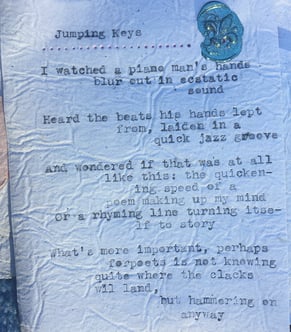 Jumping Keys
I watched a piano man's hands
blur out in ecstatic
sound
Heard the beats his hands lept
from, laiden in a
quick jazz groove
And wondered if that was at all
like this: the quicken-
ing speed of a
poem making up my mind
Or a rhyming line turning itse-
lf to story
What's more important, perhaps
forpoets is not knowing
quite where the clacks
wil land,
but hammering on
anyway